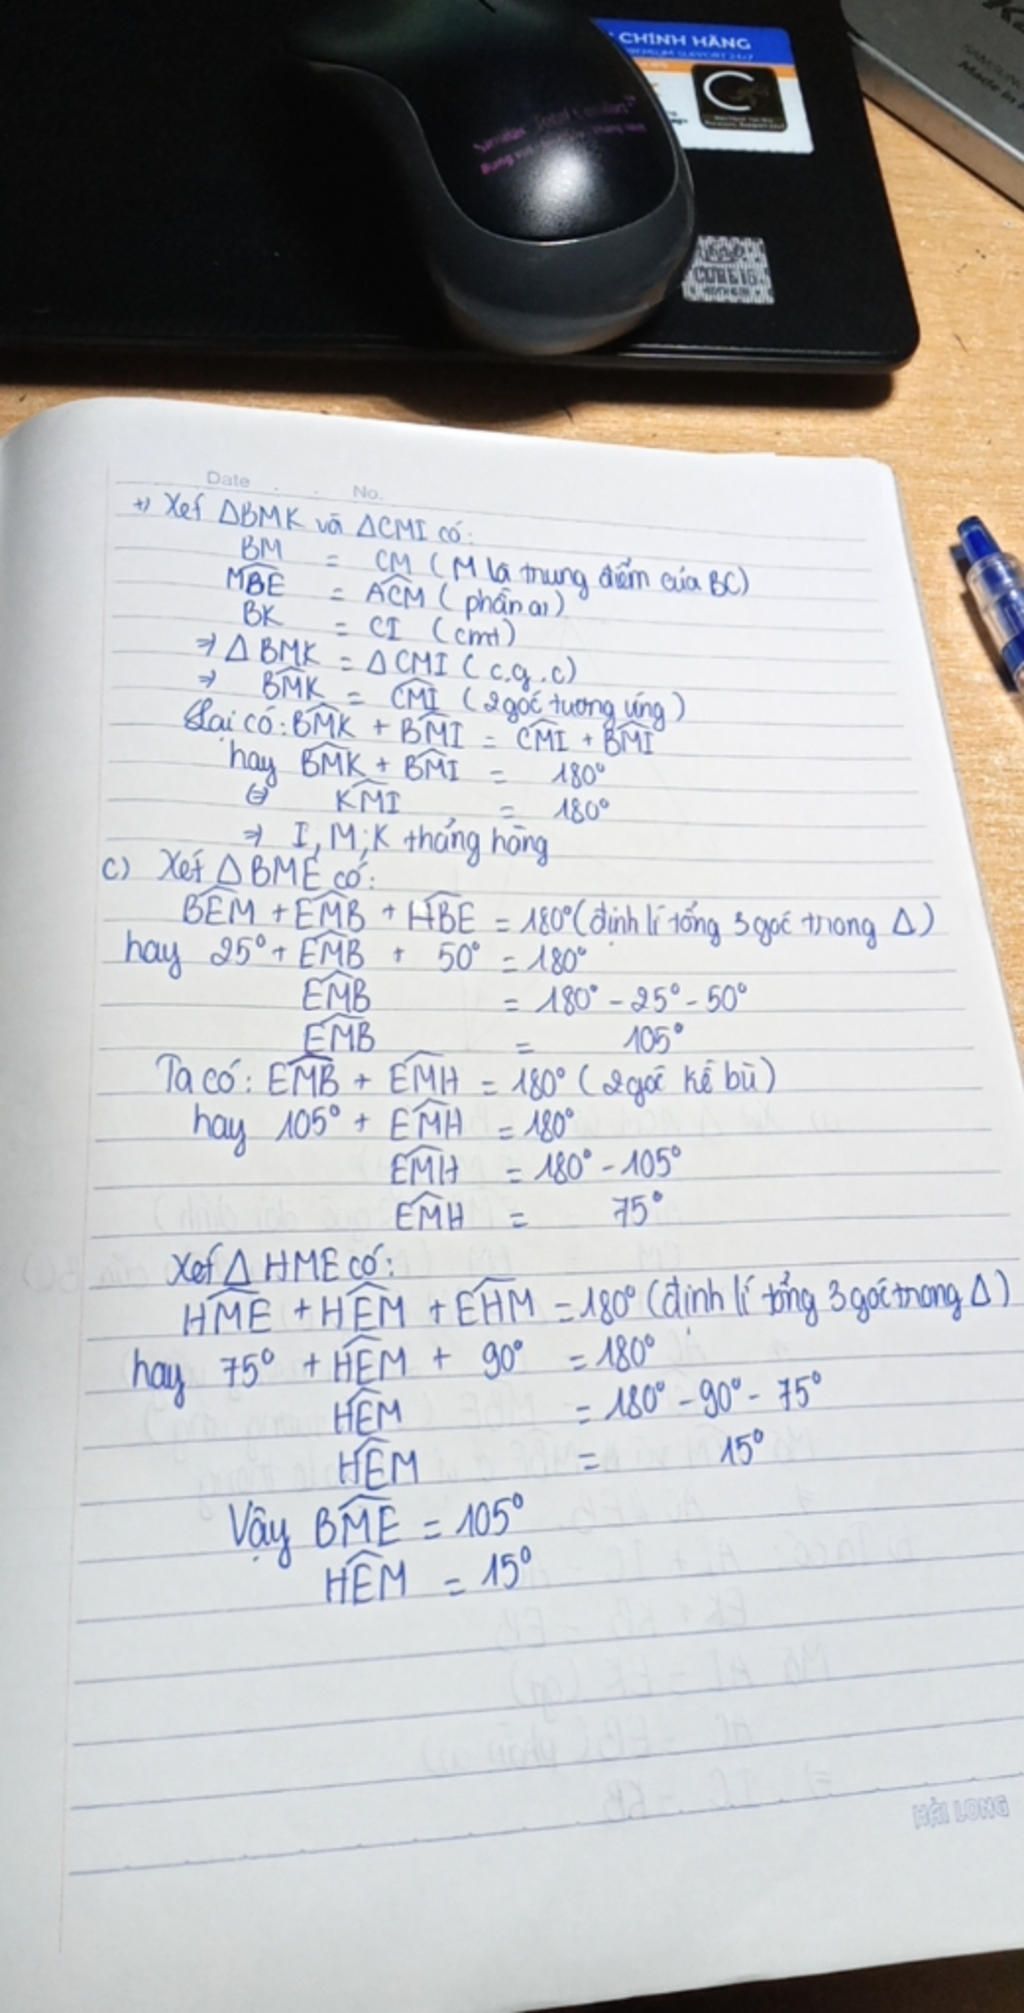 CHÍNH HÃNG
PREMIUM SUPPORT 24/7
Made in
Date No.
+) Xét ΔBMK và ΔCMI có:
BM = CM (M là trung điểm của BC)
MBE = ACM (phần a)
BK = CI (cmt)
⇒ ΔBMK = ΔCMI (c.g.c)
⇒ BMK = CMI (2 góc tương ứng)
Lại có: BMK + BMI = CMI + BMI
hay BMK + BMI = 180°
⇔ KMI = 180°
⇒ I, M, K thẳng hàng
c) Xét ΔBME có:
BEM + EMB + HBE = 180° (định lí tổng 3 góc trong Δ)
hay 25° + EMB + 50° = 180°
EMB = 180° - 25° - 50°
EMB = 105°
Ta có: EMB + EMH = 180° (2 góc kề bù)
hay 105° + EMH = 180°
EMH = 180° - 105°
EMH = 75°
Xét Δ HME có:
HME + HEM + EHM = 180° (định lí tổng 3 góc trong Δ)
hay 75° + HEM + 90° = 180°
HEM = 180° - 90° - 75°
HEM = 15°
Vậy BME = 105°
HEM = 15°
HẢI LONG